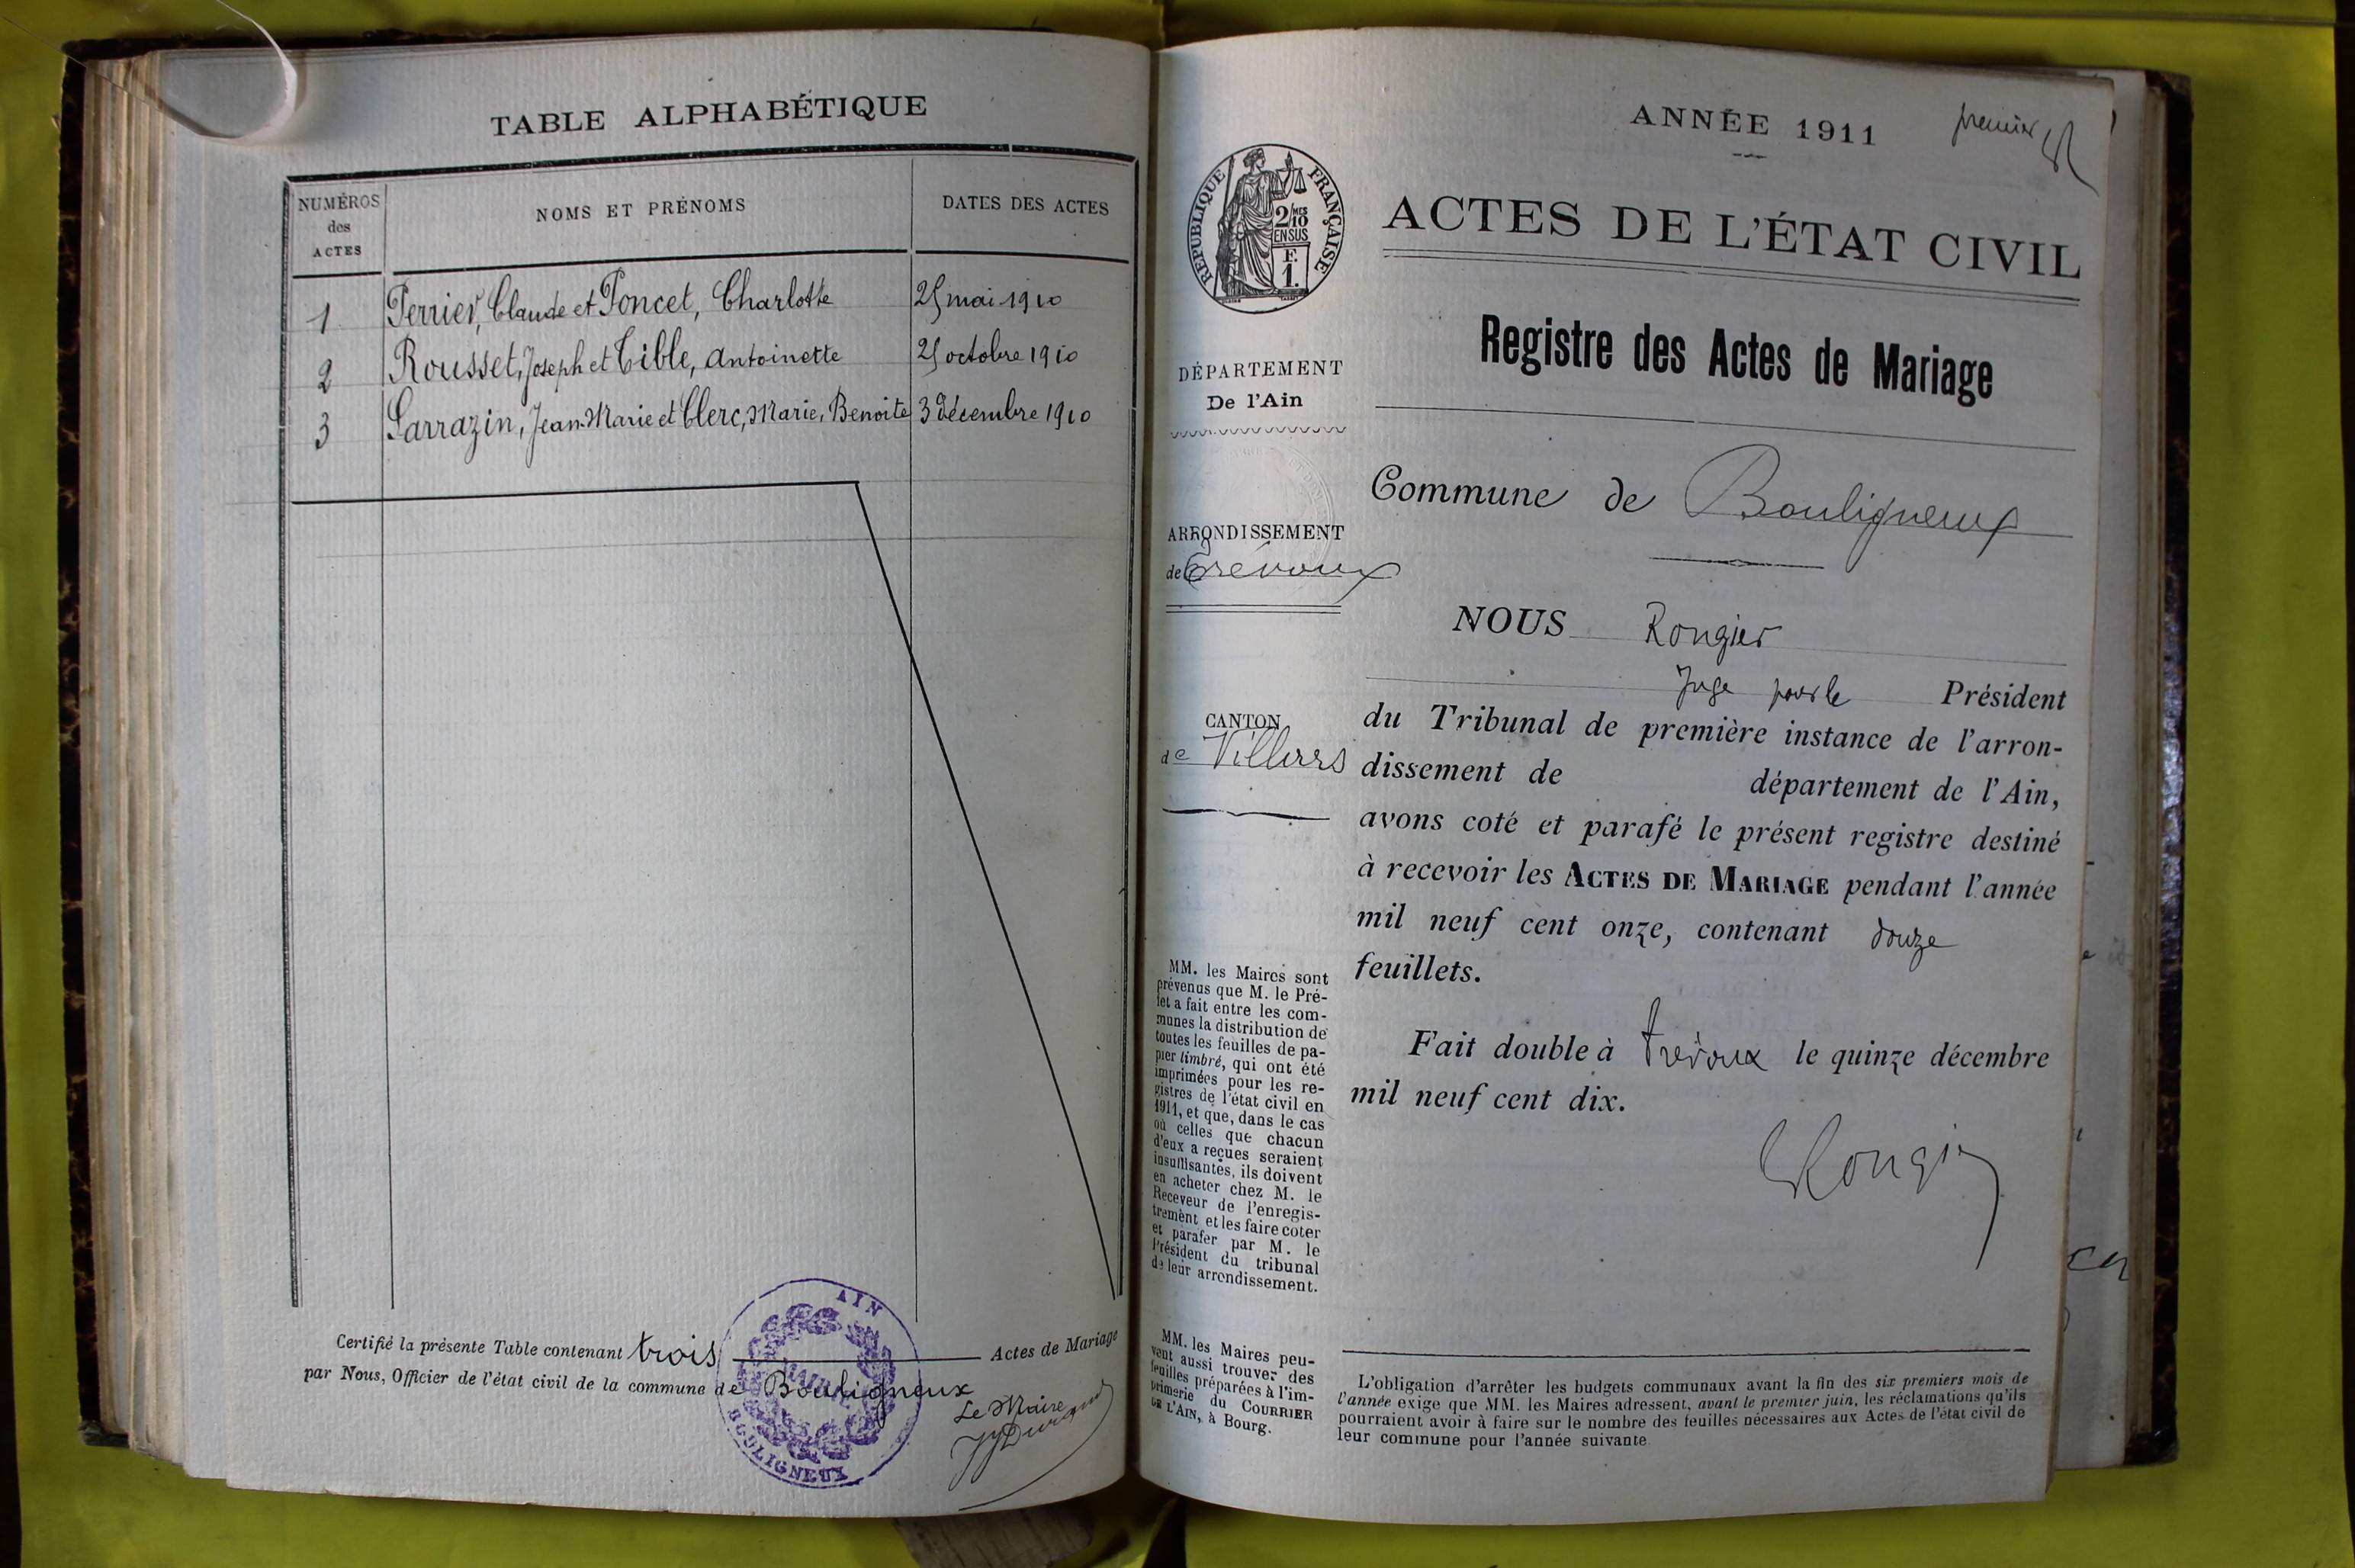 TABLE ALPHABÉTIQUE
NUMÉROS des ACTES
NOMS ET PRÉNOMS
DATES DES ACTES
1 Perrier, Claude et Poncet, Charlotte 25 mai 1910
2 Rousset, Joseph et Cible, Antoinette 25 octobre 1910
3 Sarrazin, Jean-Marie et Clerc, Marie, Benoite 3 décembre 1910
Certifié la présente Table contenant trois Actes de Mariage
par Nous, Officier de l'état civil de la commune de Bouligneux
Le Maire
AIN
MAIRIE
BOULIGNEUX
ANNÉE 1911
premier
RÉPUBLIQUE FRANÇAISE
2/10 MES
EN SUS
F.
1.
DÉPARTEMENT
De l'Ain
ARRONDISSEMENT
de Trévoux
CANTON
de Villars
MM. les Maires sont
prévenus que M. le Pré-
fet a fait entre les com-
munes la distribution de
toutes les feuilles de pa-
pier timbré, qui ont été
imprimées pour les re-
gistres de l'état civil en
1911, et que, dans le cas
où celles que chacun
d'eux a reçues seraient
insuffisantes, ils doivent
en acheter chez M. le
Receveur de l'enregis-
trement et les faire coter
et parafer par M. le
Président du tribunal
de leur arrondissement.
MM. les Maires peu-
vent aussi trouver des
feuilles préparées à l'im-
primerie du COURRIER
DE L'AIN, à Bourg.
ACTES DE L'ÉTAT CIVIL
Registre des Actes de Mariage
Commune de Bouligneux
NOUS Rongier
Juge pour le Président
du Tribunal de première instance de l'arron-
dissement de département de l'Ain,
avons coté et parafé le présent registre destiné
à recevoir les ACTES DE MARIAGE pendant l'année
mil neuf cent onze, contenant douze
feuillets.
Fait double à Trévoux le quinze décembre
mil neuf cent dix.
Rongier
L'obligation d'arrêter les budgets communaux avant la fin des six premiers mois de
l'année exige que MM. les Maires adressent, avant le premier juin, les réclamations qu'ils
pourraient avoir à faire sur le nombre des feuilles nécessaires aux Actes de l'état civil de
leur commune pour l'année suivante